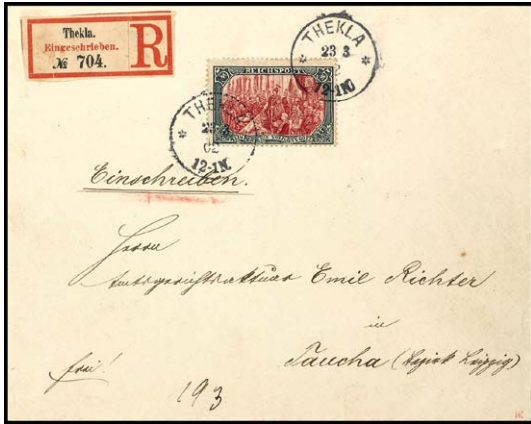 Thekla.
Eingeschrieben.
№ 704.
R
THEKLA
23 3
2
12-1N
REICHSPOST
THE
23 3
02
12-1N.
Einschreiben.
Herrn
Amtsgerichtsaktuar Emil Richter
in
Taucha (Bezirk Leipzig)
frei!
193